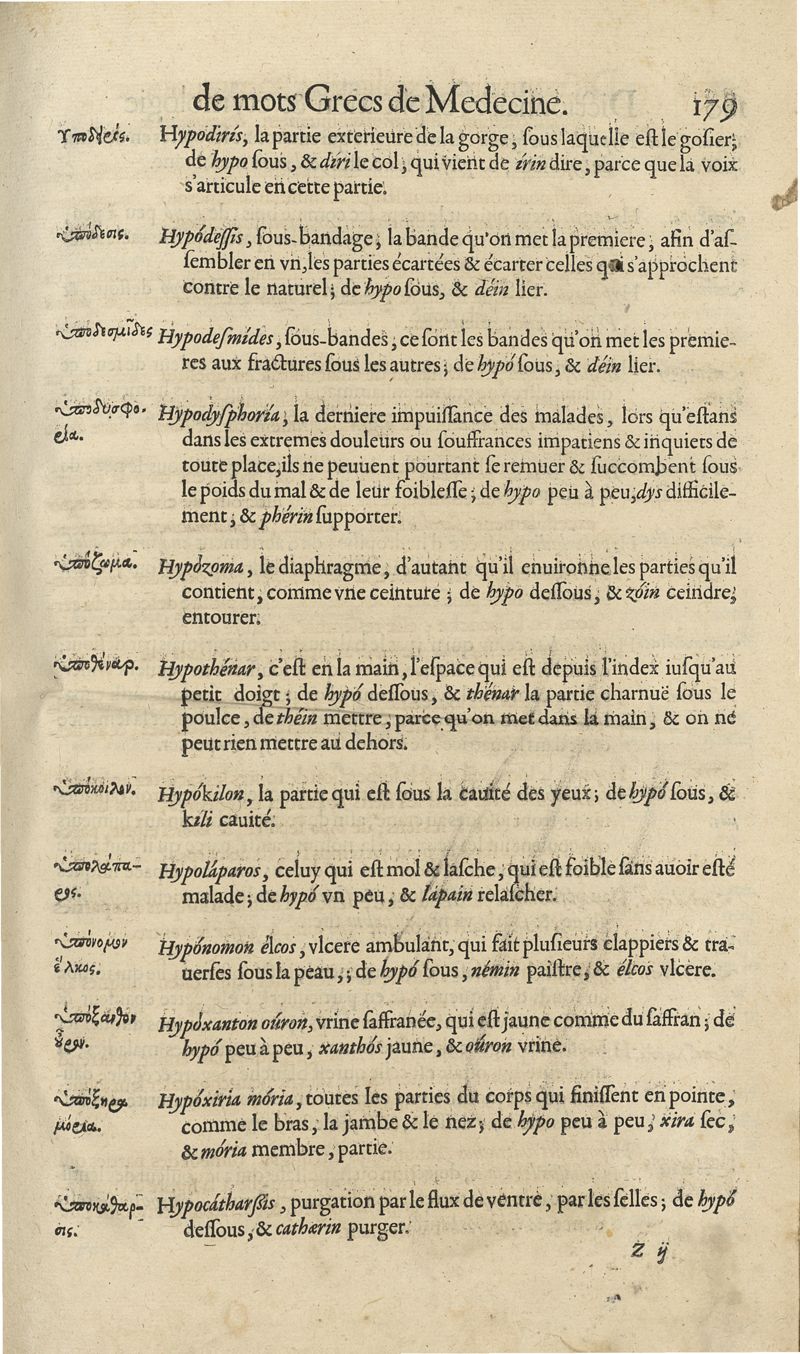 de mots Grecs de Medecine. 179
Hypodirís, la partie exterieure de la gorge, sous laquelle est le gosier;
de hypo sous, & díri le col, qui vient de írin dire, parce que la voix
s'articule en cette partie.
ὑπόδεσις. Hypódessis, sous-bandage, la bande qu'on met la premiere, afin d'as-
sembler en vn, les parties écartées & écarter celles qui s'approchent
contre le naturel; de hypo sous, & déin lier.
ὑποδεσμῖδες Hypodesmídes, sous-bandes, ce sont les bandes qu'on met les premie-
res aux fractures sous les autres; de hypó sous, & déin lier.
ὑποδυσφο- Hypodysphoría, la derniere impuissance des malades, lors qu'estans
ρία. dans les extremes douleurs ou souffrances impatiens & inquiets de
toute place, ils ne peuuent pourtant se remuer & succombent sous
le poids du mal & de leur foiblesse; de hypo peu à peu, dys difficile-
ment; & phérin supporter.
ὑπόζωμα. Hypózoma, le diaphragme, d'autant qu'il enuironne les parties qu'il
contient, comme vne ceinture; de hypo dessous, & zóin ceindre,
entourer.
ὑποθέναρ. Hypothénar, c'est en la main, l'espace qui est depuis l'index iusqu'au
petit doigt; de hypó dessous, & thénar la partie charnuë sous le
poulce, de théin mettre, parce qu'on met dans la main, & on ne
peut rien mettre au dehors.
ὑπόκοιλον. Hypókilon, la partie qui est sous la cauité des yeux; de hypó sous, &
kili cauité.
ὑπολάπα- Hypoláparos, celuy qui est mol & lasche, qui est foible sans auoir esté
ρος. malade; de hypó vn peu, & lapain relascher.
ὑπόνομον Hypónomon élcos, vlcere ambulant, qui fait plusieurs clappiers & tra-
ἕλκος. uerses sous la peau,; de hypó sous, némin paistre, & élcos vlcère.
ὑπόξανθον Hypóxanton oúron, vrine saffranée, qui est jaune comme du saffran; de
οὖρον. hypó peu à peu, xanthós jaune, & oúron vrine.
ὑπόξηρα Hypóxiria mória, toutes les parties du corps qui finissent en pointe,
μόρια. comme le bras, la jambe & le nez; de hypo peu à peu, xira sec,
& mória membre, partie.
ὑποκάθαρ- Hypocátharsis, purgation par le flux de ventre, par les selles; de hypó
σις. dessous, & cathærin purger.
Z ij